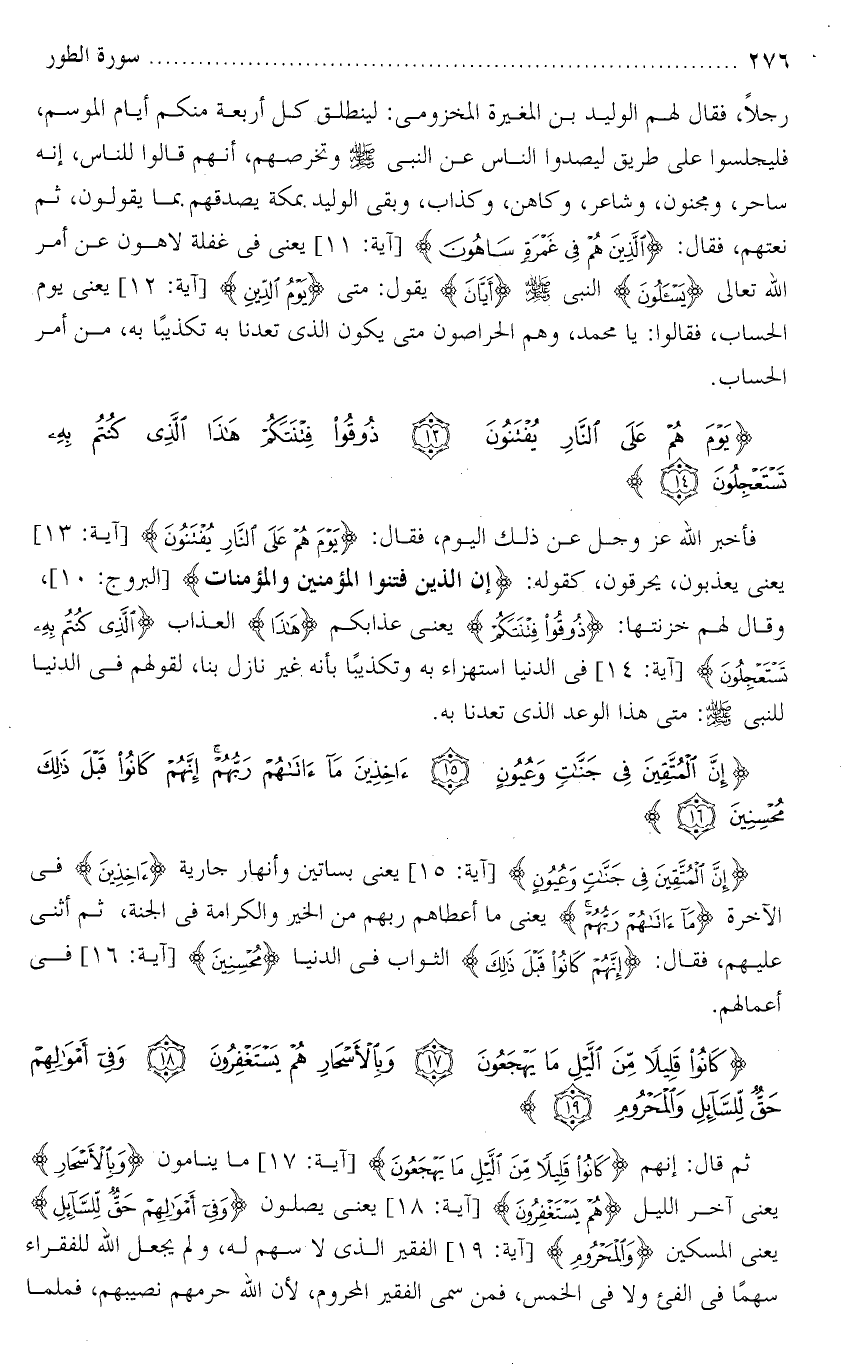 ٢٧٦ ........................................................................ سورة الطور
رجلاً، فقال لهم الوليد بن المغيرة المخزومى: لينطلق كل أربعة منكم أيام الموسم،
فليجلسوا على طريق ليصدوا الناس عن النبى ﷺ وتخرصهم، أنهم قالوا للناس، إنه
ساحر، ومجنون، وشاعر، وكاهن، وكذاب، وبقى الوليد بمكة يصدقهم بما يقولون، ثم
نعتهم، فقال: ﴿ٱلَّذِينَ هُمْ فِى غَمْرَةٍ سَاهُونَ﴾ [آية: ١١] يعنى فى غفلة لاهون عن أمر
الله تعالى ﴿يَسْـَٔلُونَ﴾ النبى ﷺ ﴿أَيَّانَ﴾ يقول: متى ﴿يَوْمُ ٱلدِّينِ﴾ [آية: ١٢] يعنى يوم
الحساب، فقالوا: يا محمد، وهم الخراصون متى يكون الذى تعدنا به تكذيبًا به، من أمر
الحساب.
﴿يَوْمَ هُمْ عَلَى ٱلنَّارِ يُفْتَنُونَ ١٣ ذُوقُوا۟ فِتْنَتَكُمْ هَٰذَا ٱلَّذِى كُنتُم بِهِۦ
تَسْتَعْجِلُونَ ١٤﴾
فأخبر الله عز وجل عن ذلك اليوم، فقال: ﴿يَوْمَ هُمْ عَلَى ٱلنَّارِ يُفْتَنُونَ﴾ [آية: ١٣]
يعنى يعذبون، يحرقون، كقوله: ﴿إن الذين فتنوا المؤمنين والمؤمنات﴾ [البروج: ١٠]،
وقال لهم خزنتها: ﴿ذُوقُوا۟ فِتْنَتَكُمْ﴾ يعنى عذابكم ﴿هَٰذَا﴾ العذاب ﴿ٱلَّذِى كُنتُم بِهِۦ
تَسْتَعْجِلُونَ﴾ [آية: ١٤] فى الدنيا استهزاء به وتكذيبًا بأنه غير نازل بنا، لقولهم فى الدنيا
للنبى ﷺ: متى هذا الوعد الذى تعدنا به.
﴿إِنَّ ٱلْمُتَّقِينَ فِى جَنَّٰتٍ وَعُيُونٍ ١٥ ءَاخِذِينَ مَآ ءَاتَىٰهُمْ رَبُّهُمْ ۚ إِنَّهُمْ كَانُوا۟ قَبْلَ ذَٰلِكَ
مُحْسِنِينَ ١٦﴾
﴿إِنَّ ٱلْمُتَّقِينَ فِى جَنَّٰتٍ وَعُيُونٍ﴾ [آية: ١٥] يعنى بساتين وأنهار جارية ﴿ءَاخِذِينَ﴾ فى
الآخرة ﴿مَآ ءَاتَىٰهُمْ رَبُّهُمْ ۚ﴾ يعنى ما أعطاهم ربهم من الخير والكرامة فى الجنة، ثم أثنى
عليهم، فقال: ﴿إِنَّهُمْ كَانُوا۟ قَبْلَ ذَٰلِكَ﴾ الثواب فى الدنيا ﴿مُحْسِنِينَ﴾ [آية: ١٦] فى
أعمالهم.
﴿كَانُوا۟ قَلِيلًا مِّنَ ٱلَّيْلِ مَا يَهْجَعُونَ ١٧ وَبِٱلْأَسْحَارِ هُمْ يَسْتَغْفِرُونَ ١٨ وَفِىٓ أَمْوَٰلِهِمْ
حَقٌّ لِّلسَّآئِلِ وَٱلْمَحْرُومِ ١٩﴾
ثم قال: إنهم ﴿كَانُوا۟ قَلِيلًا مِّنَ ٱلَّيْلِ مَا يَهْجَعُونَ﴾ [آية: ١٧] ما ينامون ﴿وَبِٱلْأَسْحَارِ﴾
يعنى آخر الليل ﴿هُمْ يَسْتَغْفِرُونَ﴾ [آية: ١٨] يعنى يصلون ﴿وَفِىٓ أَمْوَٰلِهِمْ حَقٌّ لِّلسَّآئِلِ﴾
يعنى المسكين ﴿وَٱلْمَحْرُومِ﴾ [آية: ١٩] الفقير الذى لا سهم له، ولم يجعل الله للفقراء
سهمًا فى الفئ ولا فى الخمس، فمن سمى الفقير المحروم، لأن الله حرمهم نصيبهم، فملما